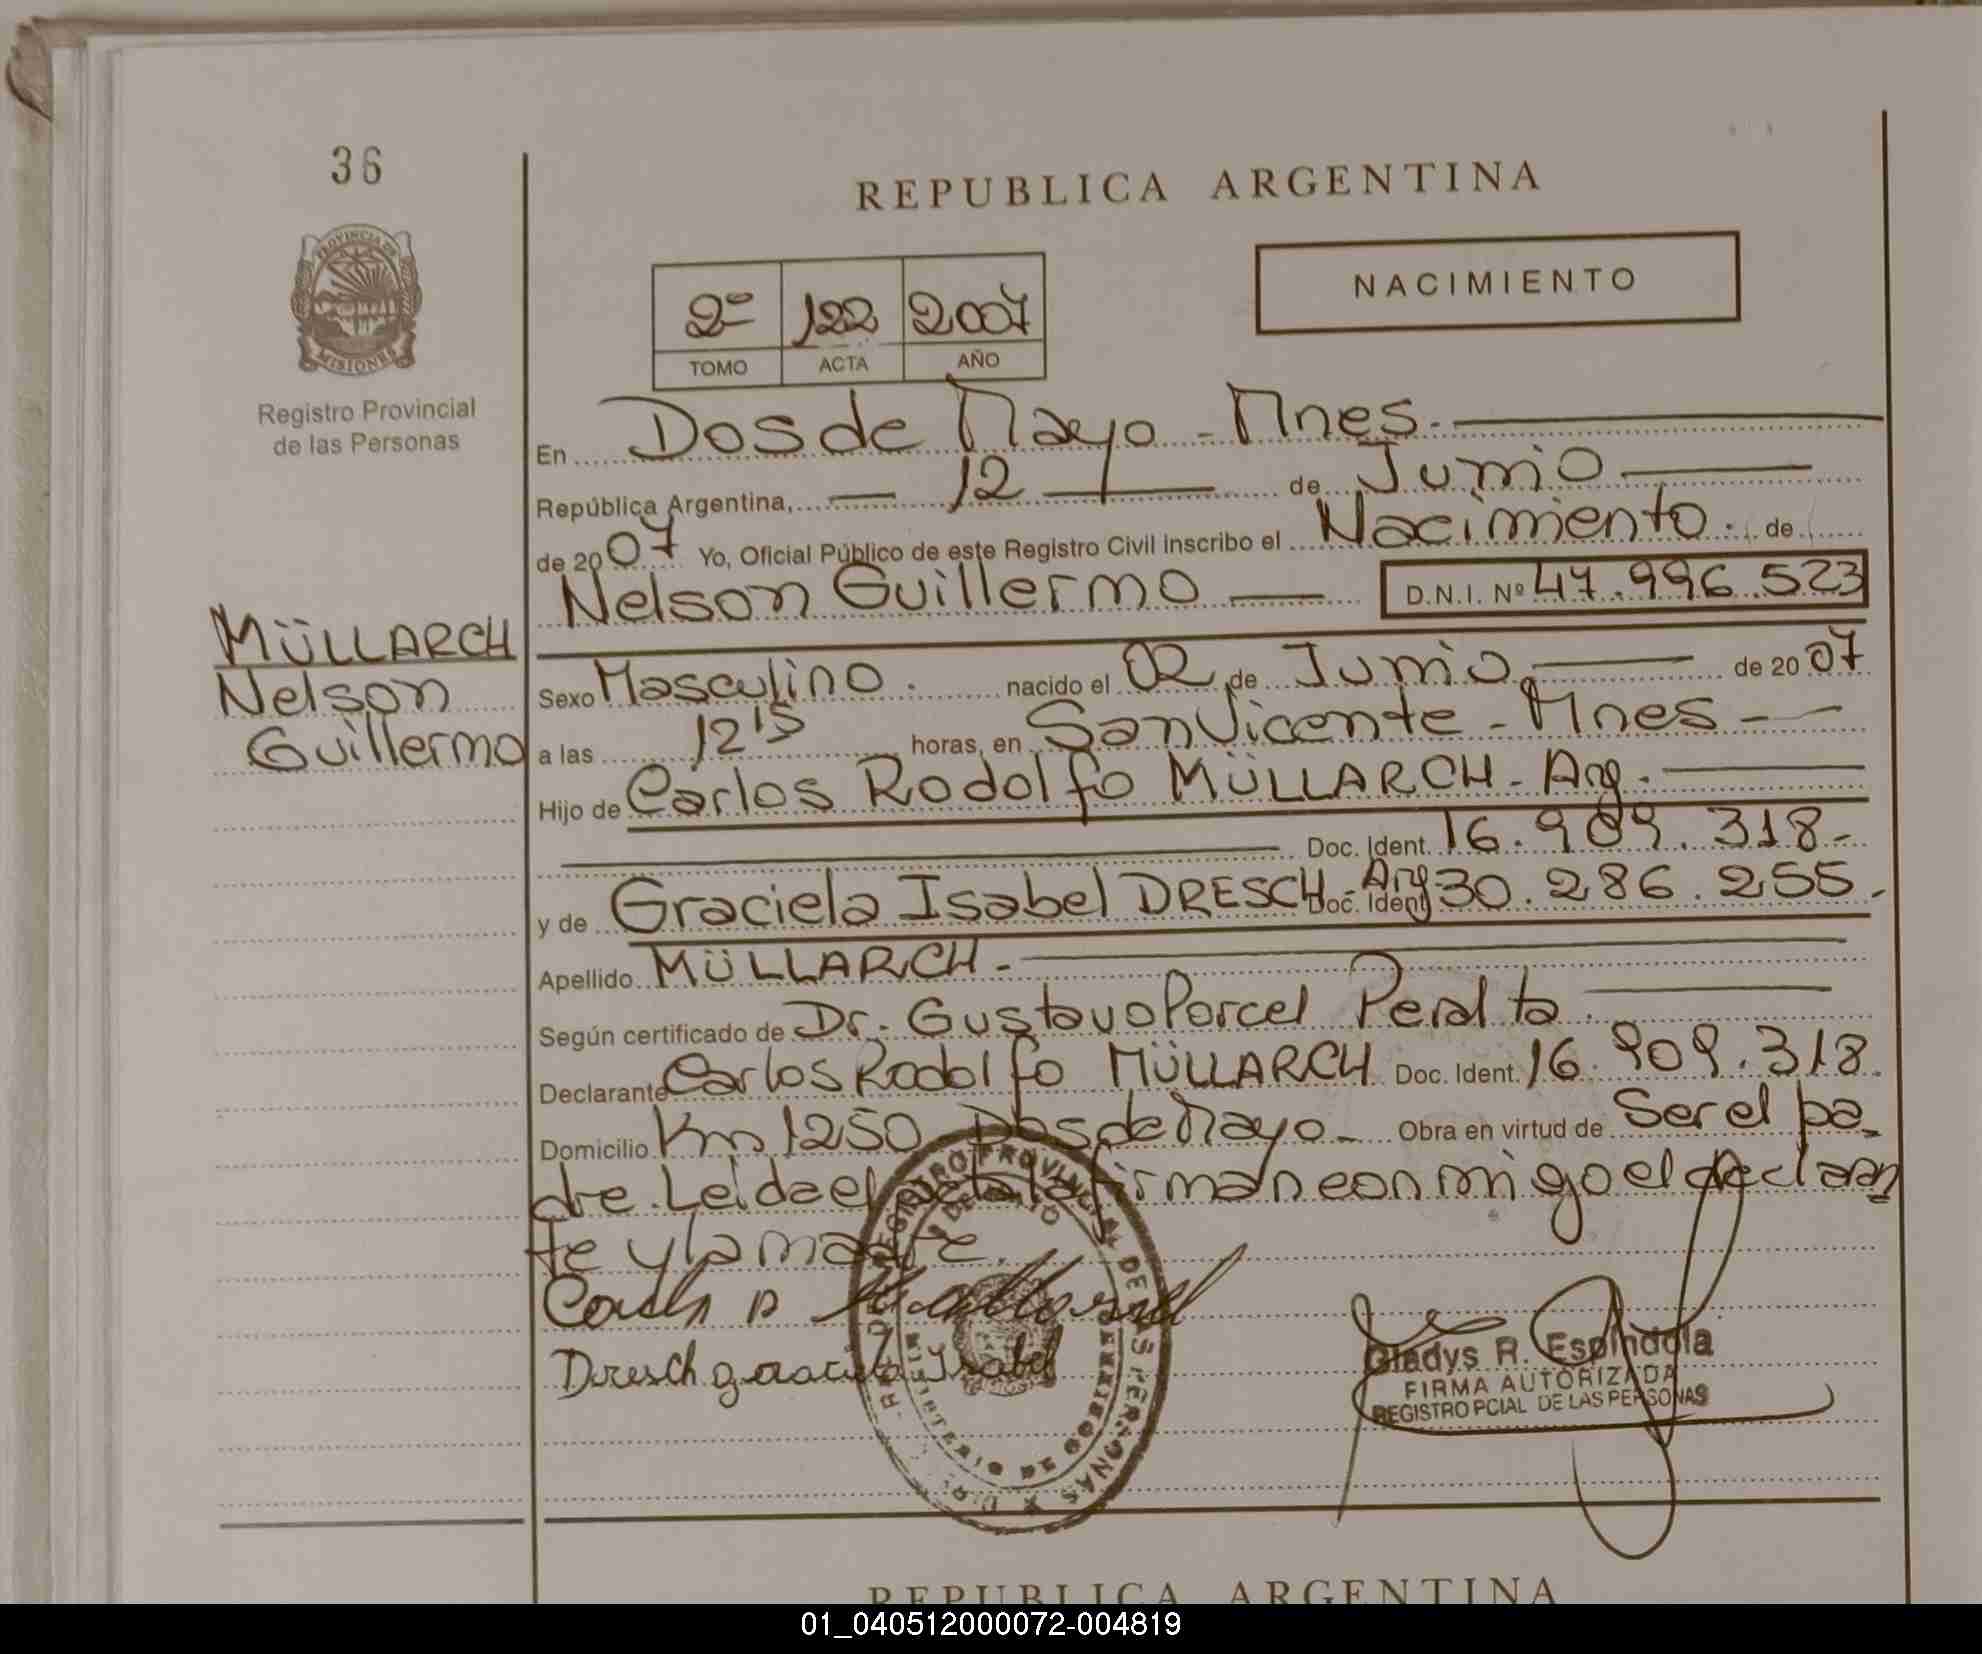 36
REPUBLICA ARGENTINA
PROVINCIA DE
MISIONES
Registro Provincial
de las Personas
NACIMIENTO
2º 122 2007
TOMO ACTA AÑO
En Dos de Mayo - Mnes.
República Argentina, 12 de Junio
de 2007 Yo, Oficial Público de este Registro Civil inscribo el Nacimiento. de
Nelson Guillermo D.N.I. Nº 47.996.523
MÜLLARCH
Nelson
Guillermo
Sexo Masculino. nacido el 02 de Junio de 2007
a las 12 15 horas, en San Vicente - Mnes -
Hijo de Carlos Rodolfo MÜLLARCH - Arg.
Doc. Ident. 16.909.318-
y de Graciela Isabel DRESCH - Arg Doc. Ident 30.286.255.
Apellido MÜLLARCH -
Según certificado de Dr. Gustavo Porcel Peralta.
Declarante Carlos Rodolfo MÜLLARCH Doc. Ident. 16.909.318.
Domicilio Km 1250 Dos de Mayo - Obra en virtud de Ser el pa-
dre. Leida el acta la firman con migo el declaran
te y la madre.
Dresch graciela Isabel
Gladys R. Espindola
FIRMA AUTORIZADA
REGISTRO PCIAL DE LAS PERSONAS
REGISTRO PROVINCIAL DE LAS PERSONAS
MINISTERIO DE GOBIERNO
REPUBLICA ARGENTINA
01_040512000072-004819